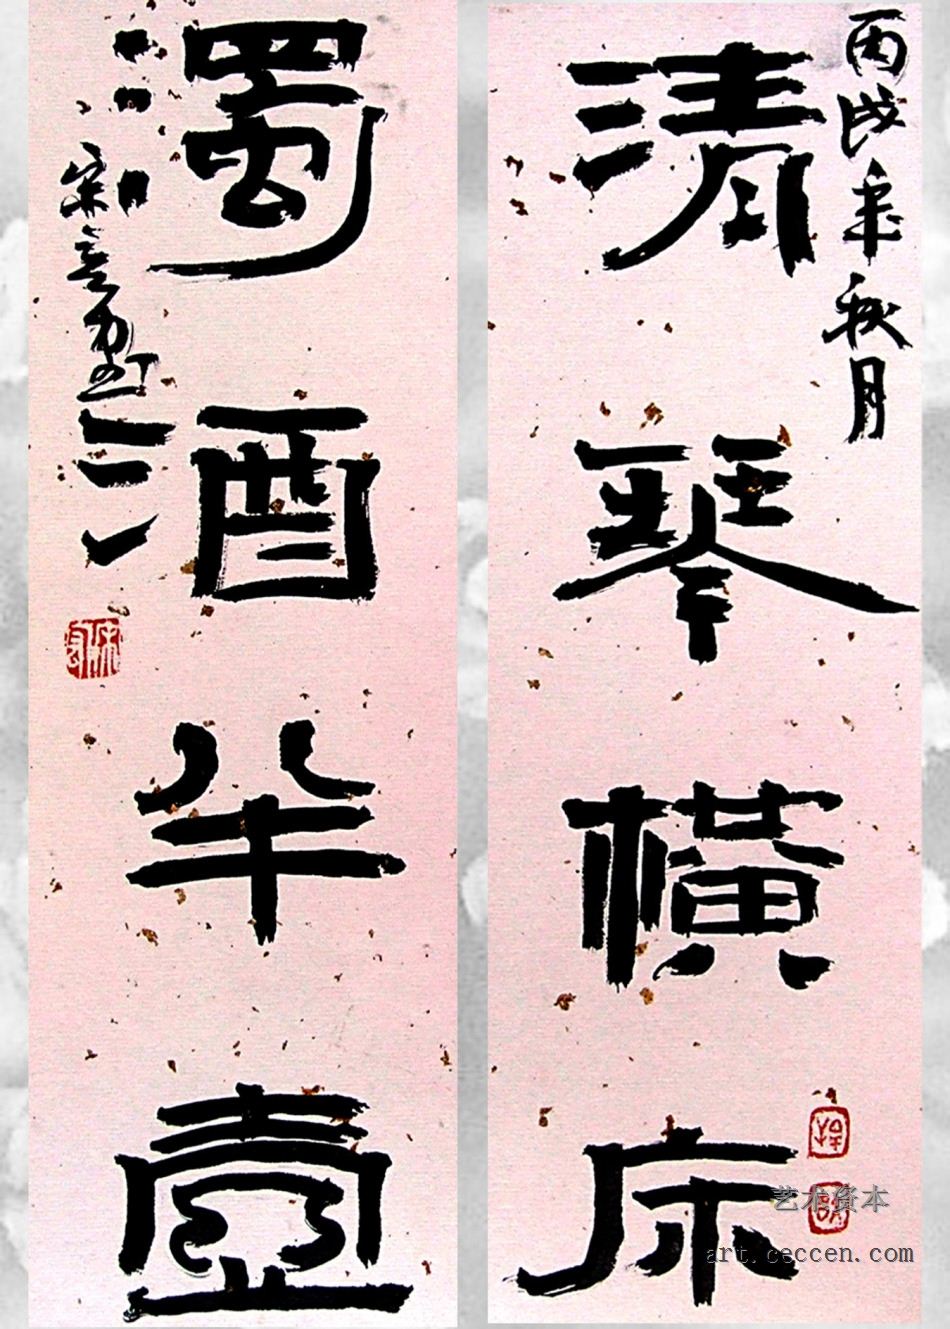 丙戌年秋月
清琴橫床
濁酒半壺
艺术资本
art.ceccen.com